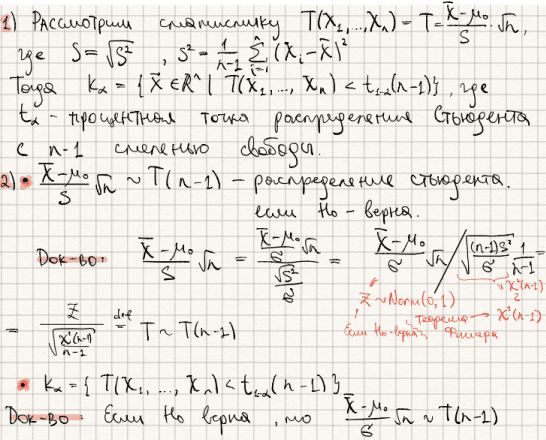 1) Рассмотрим статистику T(X₁,...,Xₙ) = T = (X̄-μ₀)/S √n,
где S = √S², S² = 1/(n-1) ∑ᵢ₌₁ⁿ (Xᵢ-X̄)²
Тогда K_α = { X̄ ∈ ℝⁿ | T(X₁,..., Xₙ) < t₁₋α(n-1)}, где
t_α - процентная точка распределения Стьюдента
с n-1 степенью свободы.
2) • (X̄-μ₀)/S √n ~ T(n-1) - распределение стьюдента.
если H₀ - верна.
Док-во: (X̄-μ₀)/S √n = ((X̄-μ₀)/σ √n)/(√S²/σ) = (X̄-μ₀)/σ √n / √((n-1)S²/σ · 1/(n-1)) =
Z ~ Norm(0,1)
χ²(n-1)
Если H₀-верна
теорема Фишера → χ²(n-1)
= Z/√(χ²(n-1)/(n-1)) def= T ~ T(n-1)
• K_α = { T(X₁, ..., Xₙ) < t₁₋α(n-1)}
Док-во Если H₀ верна, то (X̄-μ₀)/σ √n ~ T(n-1)